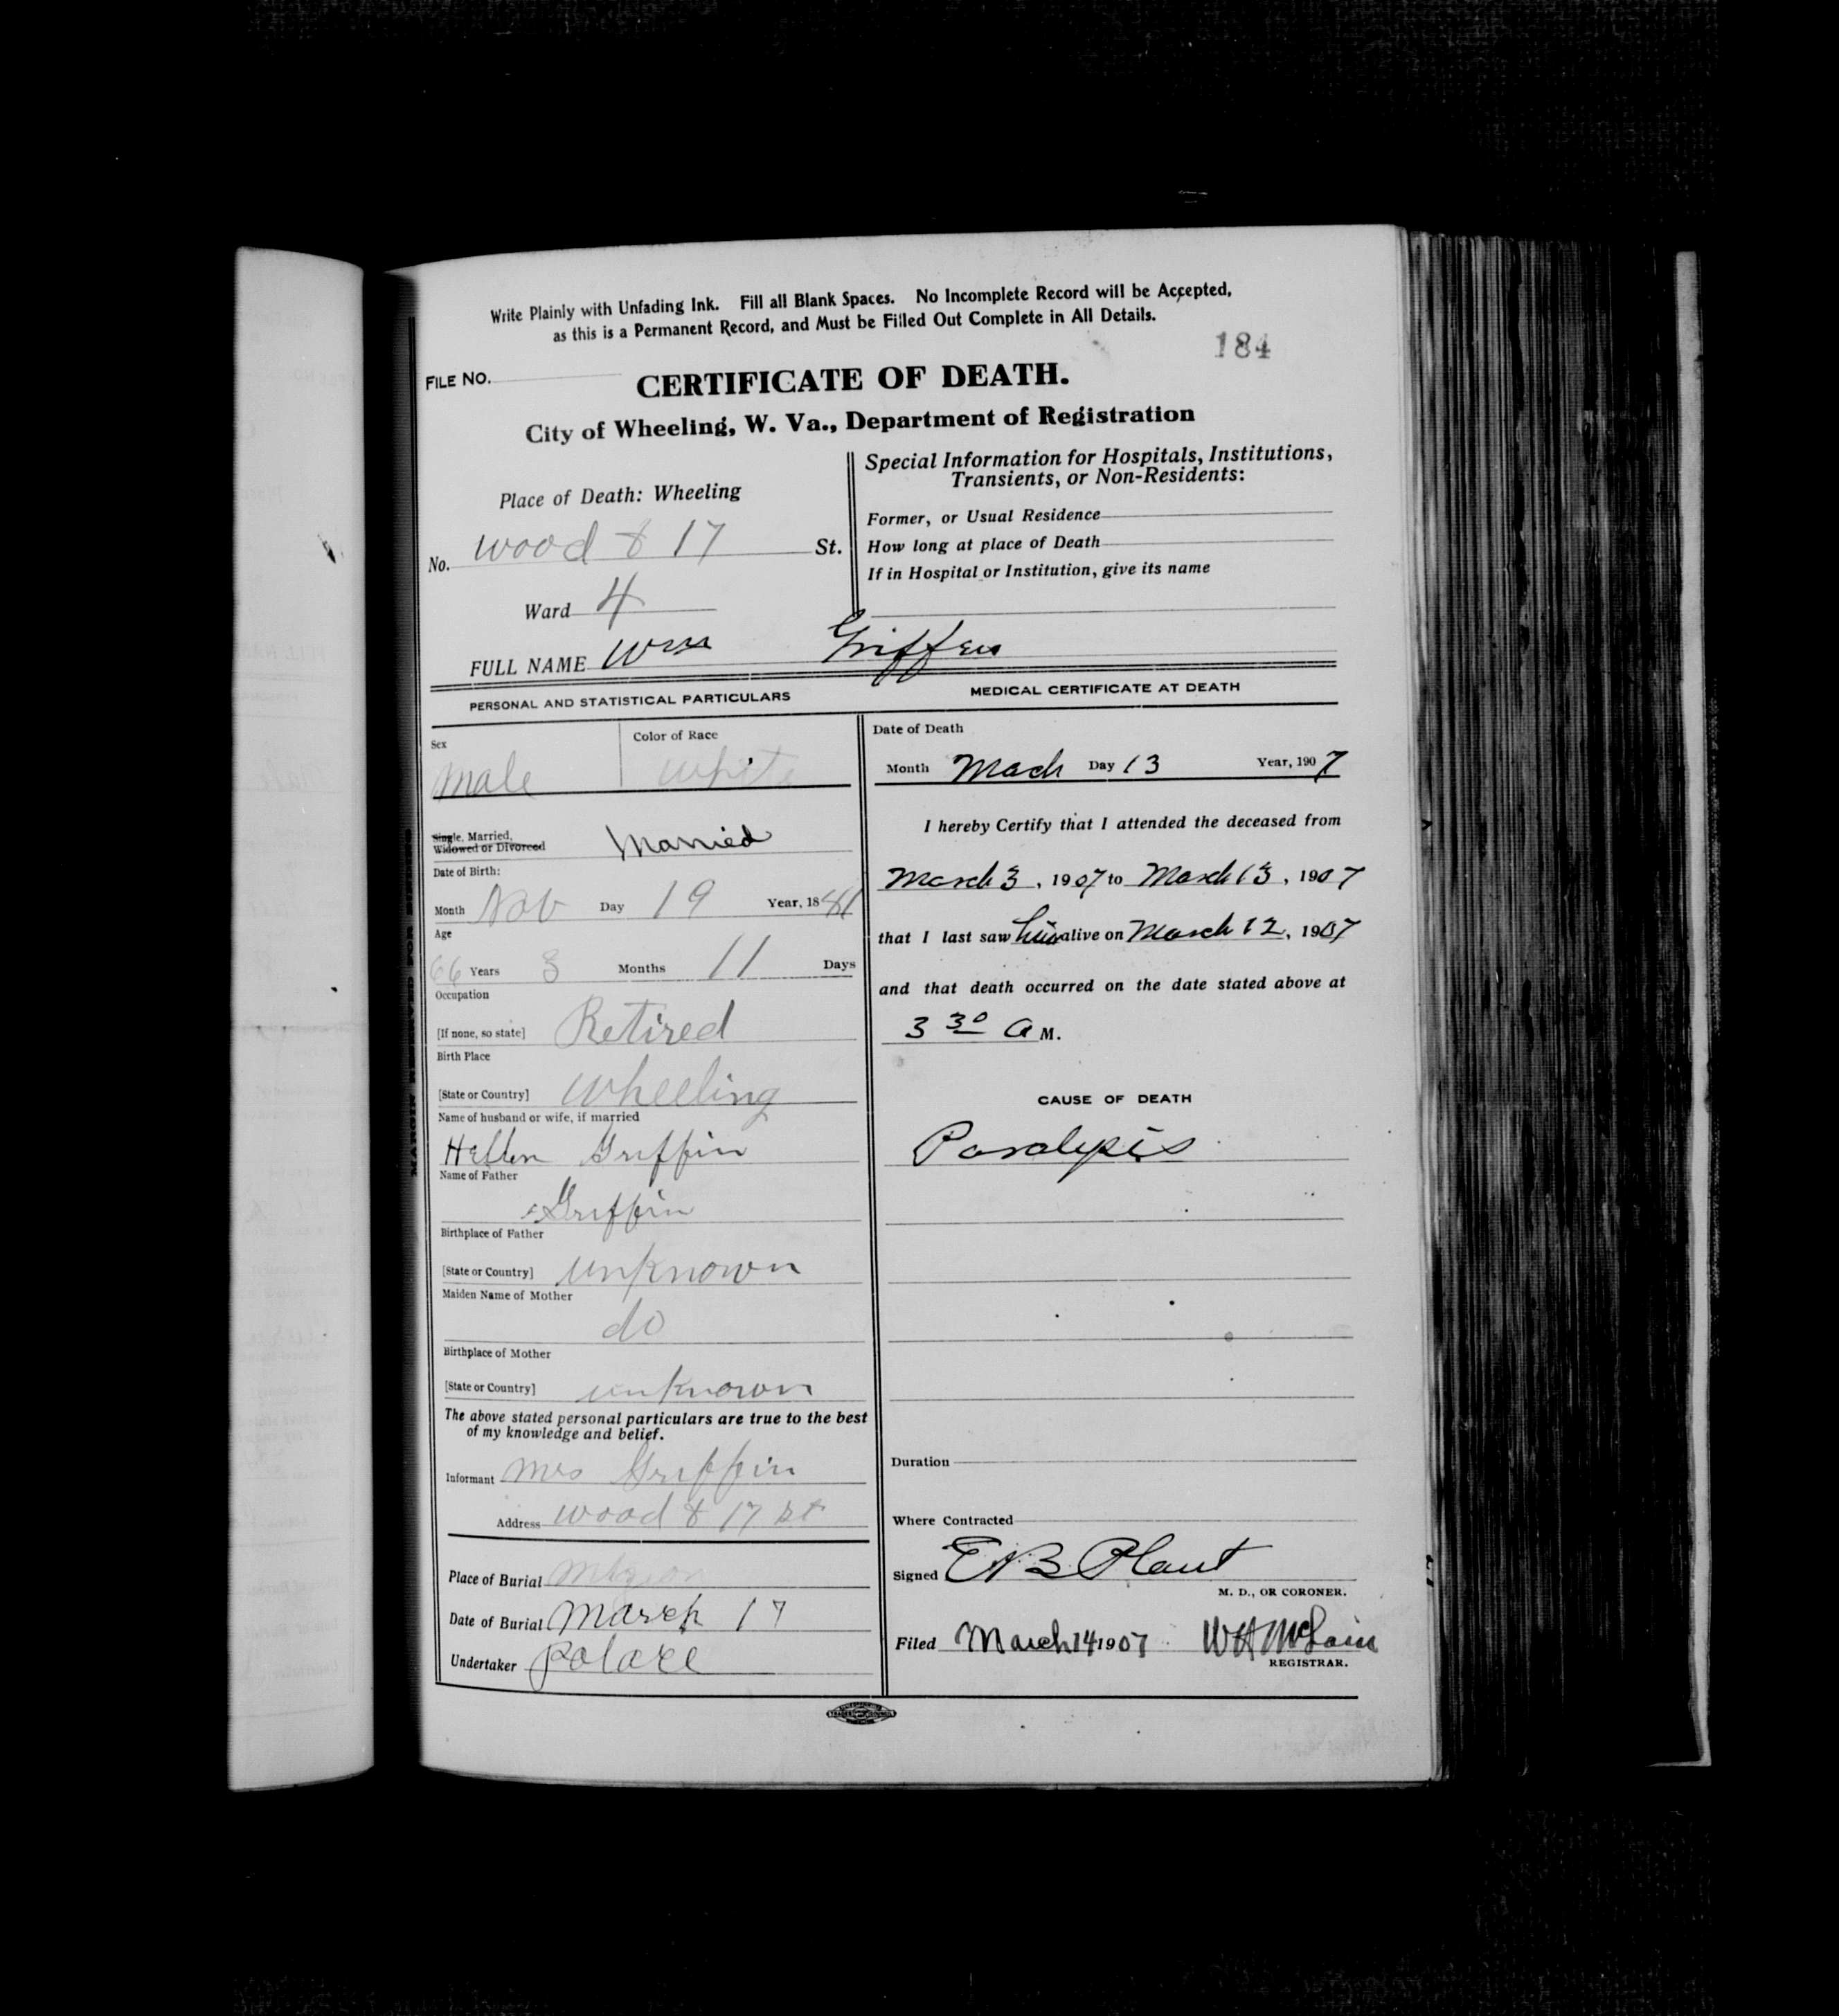 Write Plainly with Unfading Ink. Fill all Blank Spaces. No Incomplete Record will be Accepted,
as this is a Permanent Record, and Must be Filled Out Complete in All Details.
184
FILE NO.
CERTIFICATE OF DEATH.
City of Wheeling, W. Va., Department of Registration
Place of Death: Wheeling
No. Wood & 17 St.
Ward 4
Special Information for Hospitals, Institutions,
Transients, or Non-Residents:
Former, or Usual Residence
How long at place of Death
If in Hospital or Institution, give its name
FULL NAME Wm Griffen
PERSONAL AND STATISTICAL PARTICULARS
Sex
Male
Color of Race
White
Single, Married,
Widowed or Divorced Married
Date of Birth:
Month Nov Day 19 Year, 18
Age
66 Years 3 Months 11 Days
Occupation
[If none, so state] Retired
Birth Place
[State or Country] Wheeling
Name of husband or wife, if married
Hellen Griffin
Name of Father
Griffin
Birthplace of Father
[State or Country] unknown
Maiden Name of Mother
do
Birthplace of Mother
[State or Country] unknown
The above stated personal particulars are true to the best
of my knowledge and belief.
Informant Mrs Griffin
Address Wood & 17 st
Place of Burial
Date of Burial March 17
Undertaker
MEDICAL CERTIFICATE AT DEATH
Date of Death
Month Mach Day 13 Year, 1907
I hereby Certify that I attended the deceased from
March 3, 1907 to March 13, 1907
that I last saw him alive on March 12, 1907
and that death occurred on the date stated above at
3 30 a M.
CAUSE OF DEATH
Paralysis
Duration
Where Contracted
Signed E B Plant
M. D., OR CORONER.
Filed March 14 1907 WH McLain
REGISTRAR.